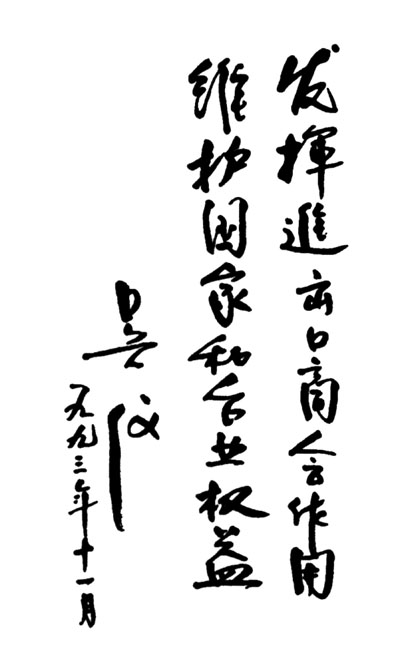 发揮進出口商会作用
维护国家和企业权益
吴仪
一九九三年十一月